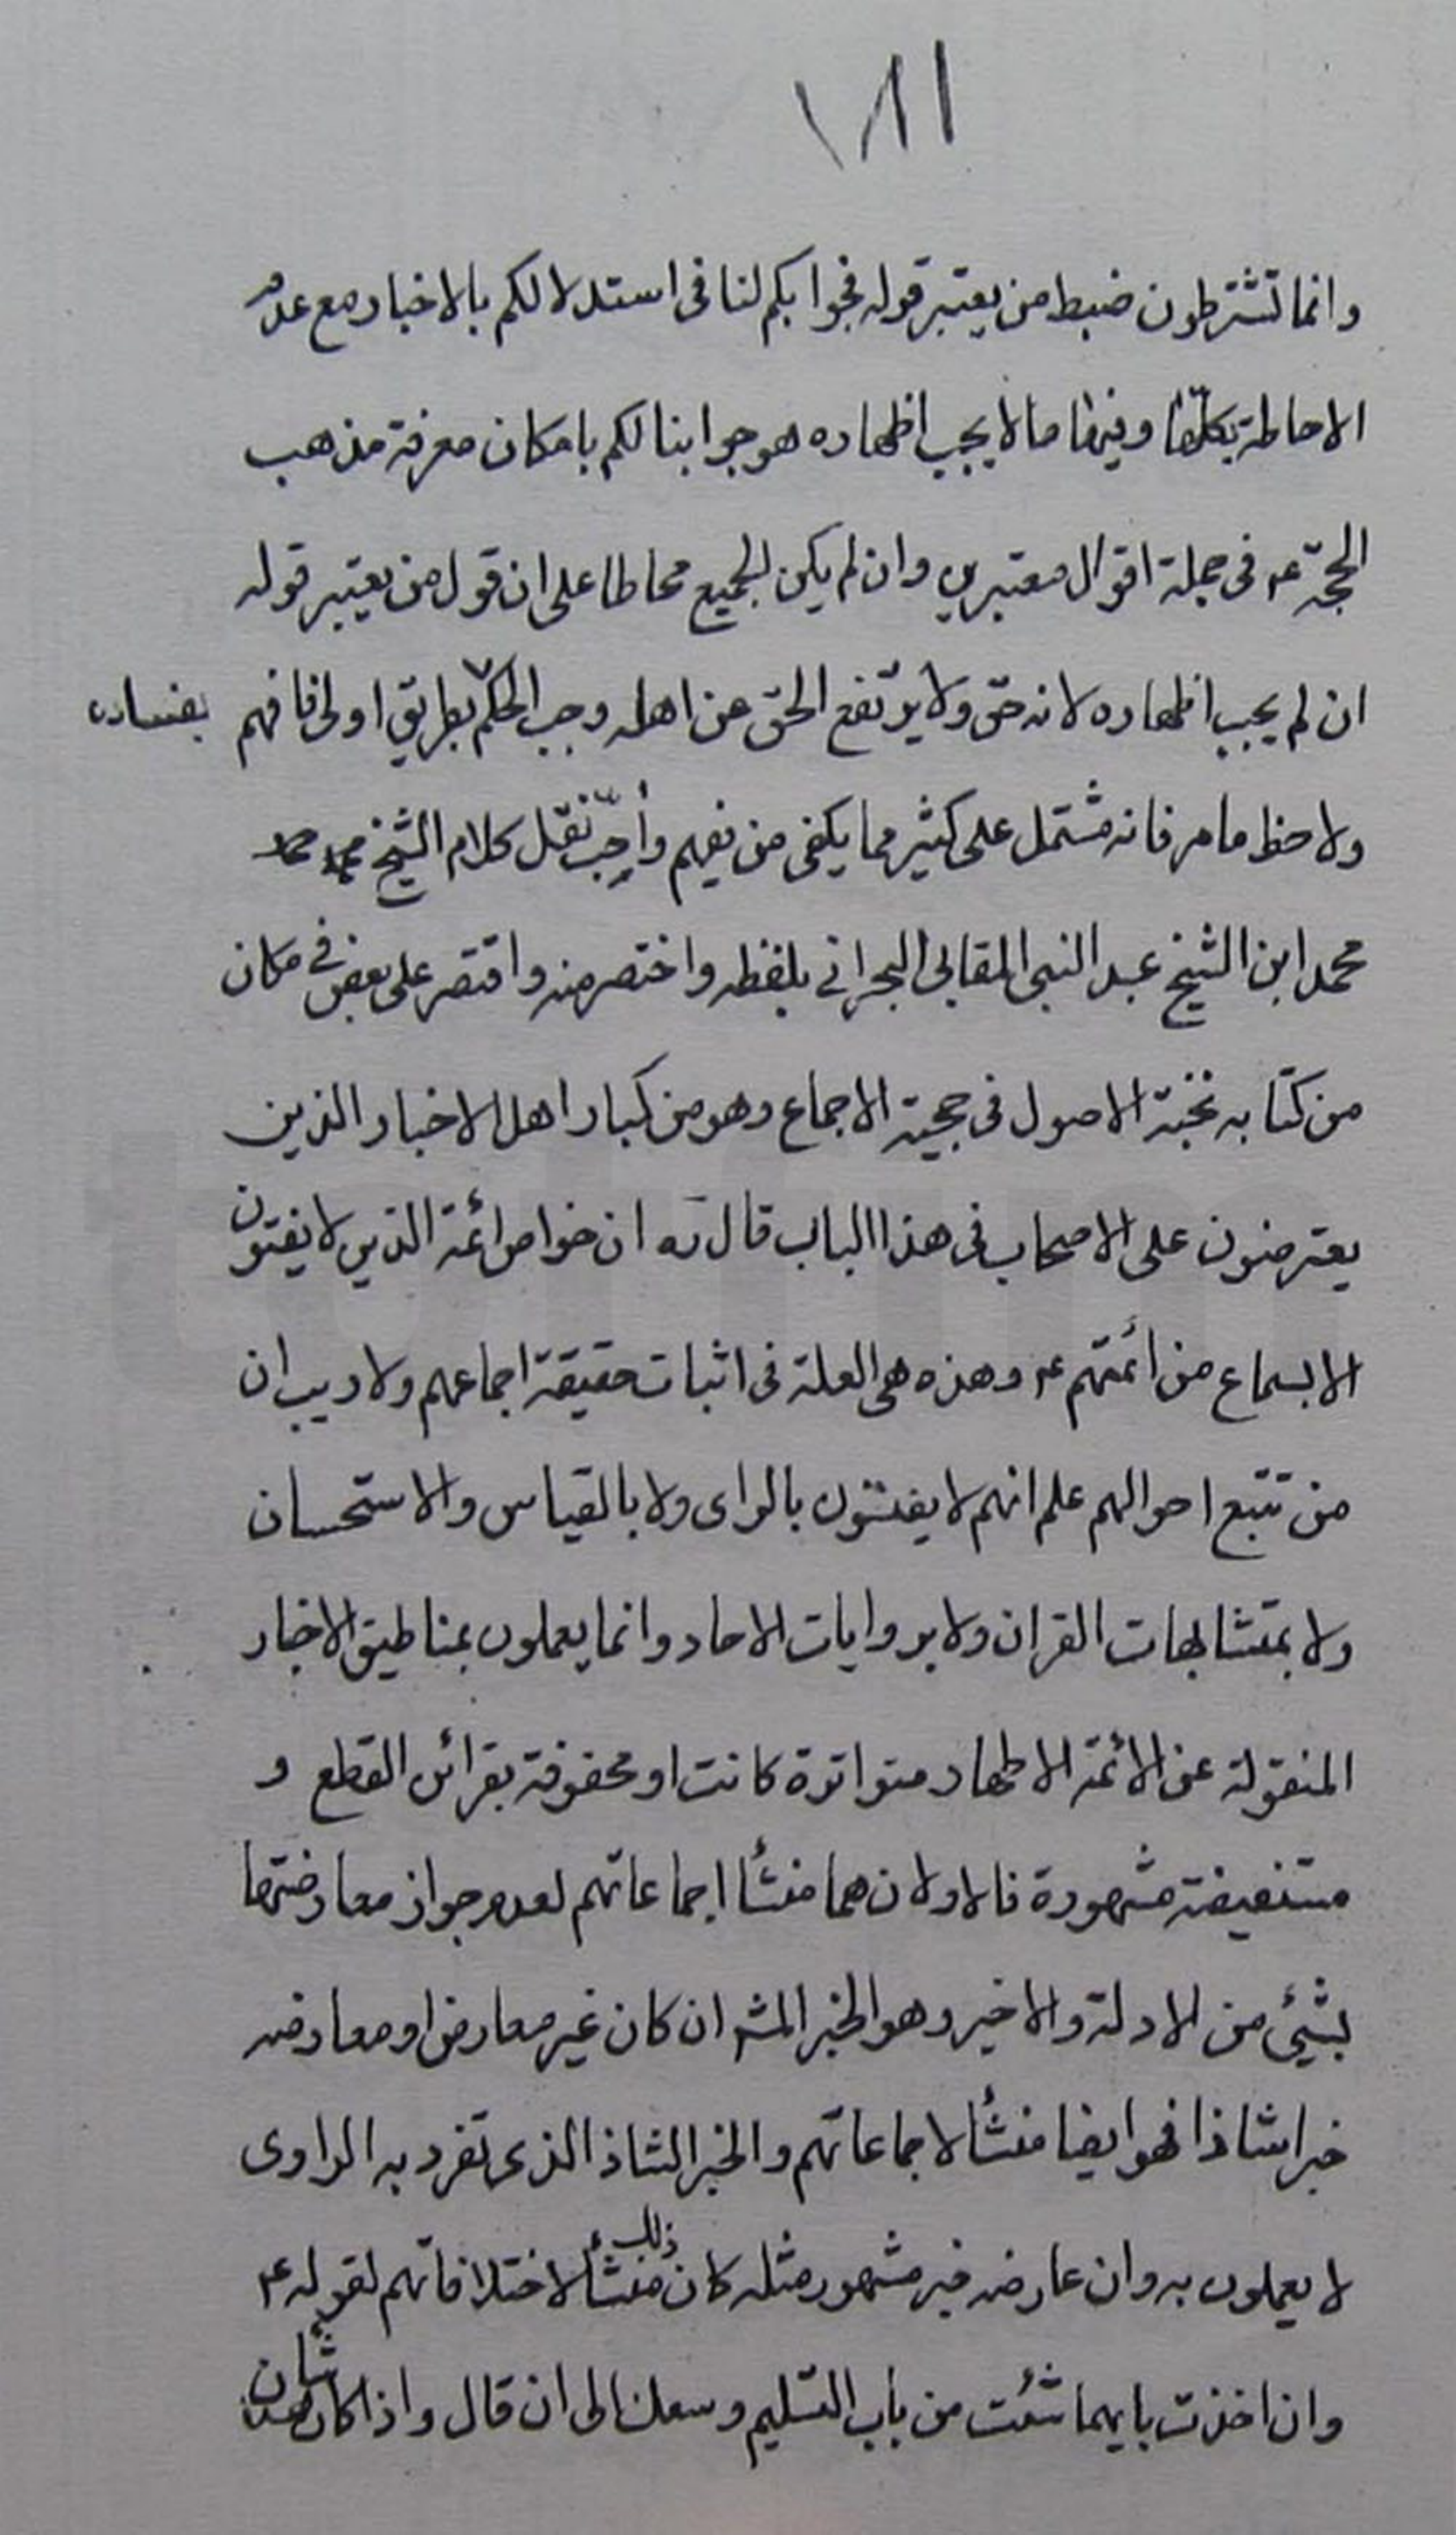 ١٨١
وانما تشترطون ضبط من يعتبر قوله فجوابكم لنا فى استدلالكم بالاخبار مع عدم
الاحاطة بكلّها وفيها ما لا يجب اظهاره هو جوابنا لكم بامكان معرفة مذهب
الحجّة ع فى جملة اقوال معتبرين وان لم يكن الجميع محاطا على ان قول من يعتبر قوله
ان لم يجب اظهاره لانه حق ولا يرتفع الحق عن اهله وجب الحكم بطريق اولى فافهم بفساده
ولاحظ ما مر فانه مشتمل على كثير مما يكفى من يفهم وأحِبّ نقل كلام الشيخ
محمد ابن الشيخ عبد النبى المقابى البحرانى بلفظه واختصر منه واقتصر على بعض فى مكان
من كتابه نخبة الاصول فى حجية الاجماع وهو من كبار اهل الاخبار الذين
يعترضون على الاصحاب فى هذا الباب قال ره ان خواص ائمة الذين لا يفتون
الا بسماع من ائمتهم ع وهذه هى العلة فى اثبات حقيقة اجماعهم ولا ريب ان
من تتبع احوالهم علم انهم لا يفتون بالراى ولا بالقياس والاستحسان
ولا بمتشابهات القران ولا بروايات الاحاد وانما يعملون بمناطيق الاخبار
المنقولة عن الائمة الاطهار متواترة كانت او محفوفة بقرائن القطع و
مستفيضة مشهورة فالاولان هما منشأ اجماعاتهم لعدم جواز معارضتها
بشيئ من الادلة والاخير وهو الخبر المشر ان كان غير معارض او معارضه
خبرا شاذا فهو ايضا منشأ لاجماعاتهم والخبر الشاذ الذى تفرد به الراوى
لا يعملون به وان عارضه خبر مشهور مثله كان ذلك منشأ لاختلافاتهم لقوله ع
وان اخذت بايهما شئت من باب التسليم وسعك الى ان قال واذا كان هذا شأن